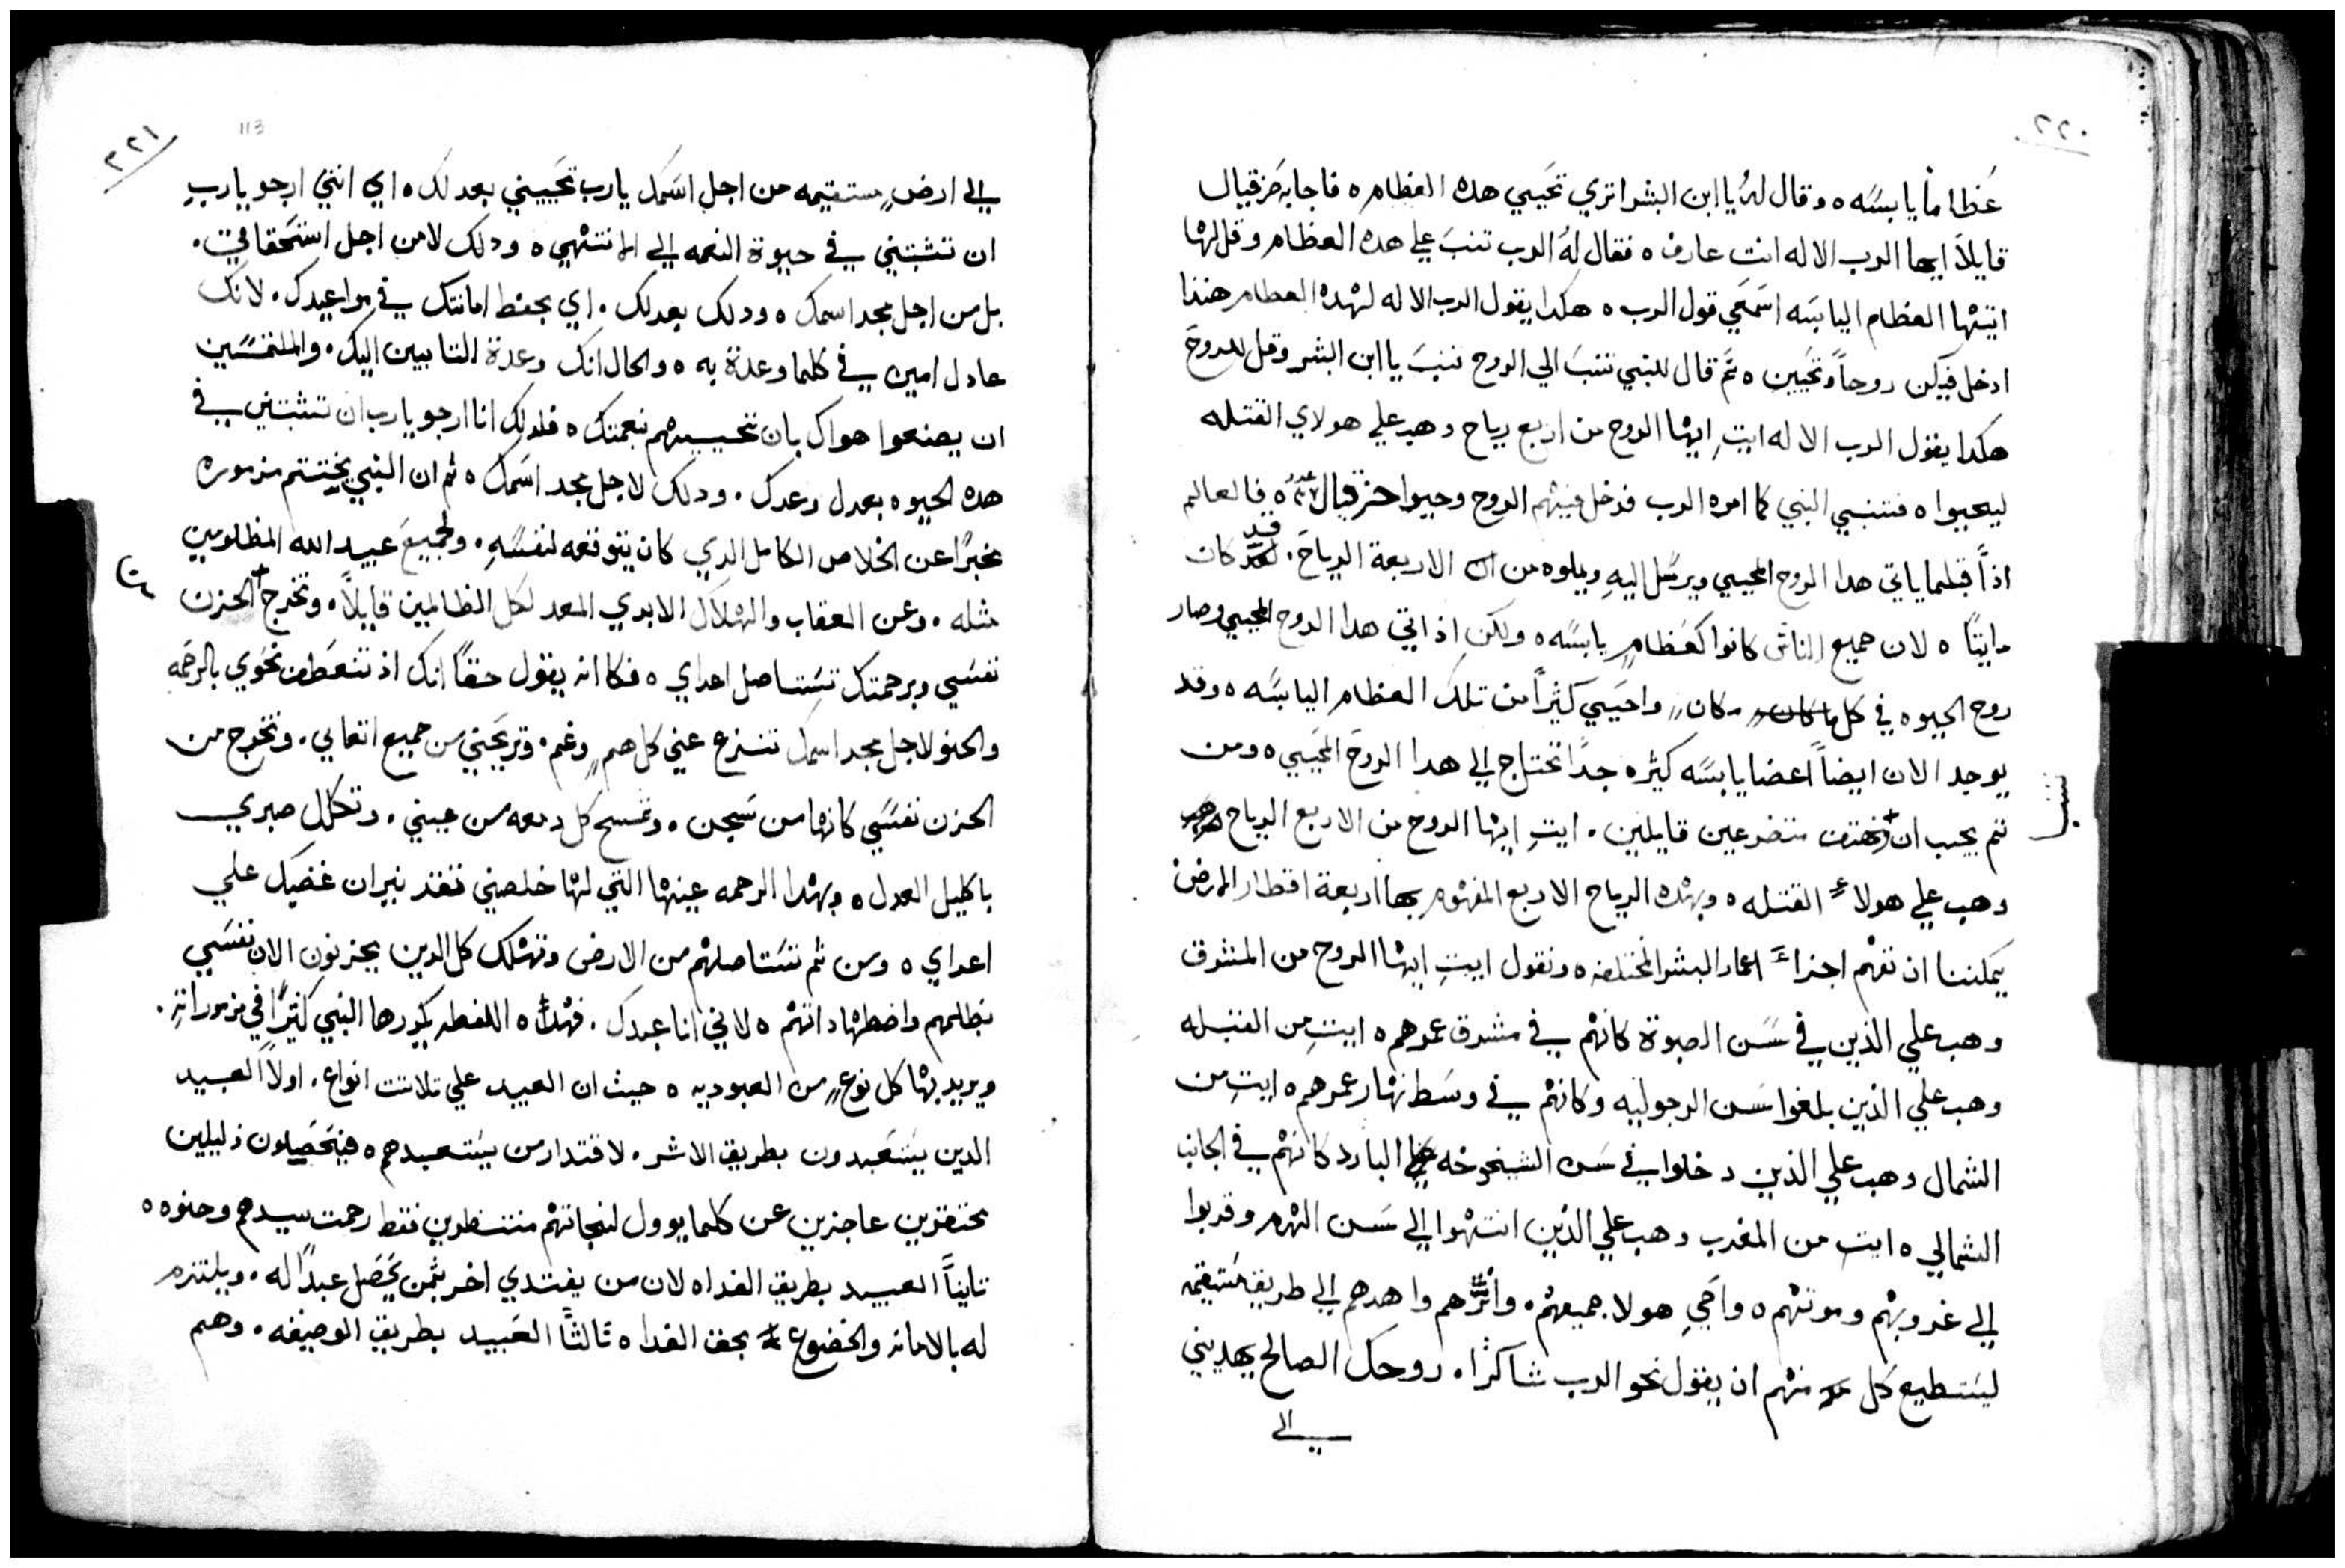 ٢٢٠
عظاماً يابسه ه وقال لهُ يا ابن البشر اتري تحيي هده العظام ه فاجابه حزقيال
قايلاً ايها الرب الاله انت عارف ه فقال لهُ الرب تنب علي هده العظام وقل لها
ايتها العظام اليابسه اسمعي قول الرب ه هكدا يقول الرب الاله لهده العظام هندا
ادخل فيكن روحاً وتحيين ه ثم قال للنبي تنب الي الروح تنب يا ابن البشر وقل للروح
هكدا يقول الرب الاله ايتِ ايها الروح من اربع رياح وهب علي هولاي القتله
ليحيوا ه فتنبي النبي كما امره الرب فدخل فيهم الروح وحيوا حزقيال ه فالعالم
اذاً قبلما ياتي هدا الروح المحيي ويرسل اليهِ ويملوه من الاربعة الرياح. قد كان
مايتاً ه لان جميع الناس كانوا كعظامٍ يابسه ه ولكن اذ اتي هدا الروح المحيي وصار
روح الحيوه في كل مكانٍ واحيي كثيراً من تلك العظام اليابسه ه وقد
يوجد الان ايضاً اعضا يابسه كثيره جداً تحتاج الي هدا الروح المحيي ه ومن
ثم يجب ان نهتف متضرعين قايلين. ايتِ ايها الروح من الاربع الرياح
وهب علي هولاء القتله ه وبهده الرياح الاربع المفهوم بها اربعة اقطار الارض
يمكننا ان نفهم اجزاء اعمار البشر المختلفه ه ونقول ايتِ ايها الروح من المشرق
وهب علي الذين في سن الصبوة كانهم في مشرق عمرهم ه ايتِ من القبله
وهب علي الذين بلغوا سن الرجوليه وكانهم في وسط نهار عمرهم ه ايتِ من
الشمال وهب علي الذين دخلوا في سن الشيخوخه البارد كانهم في الجانب
الشمالي ه ايت من المغرب وهب علي الذين انتهوا الي سن الهرم وقربوا
الي غروبهم وموتهم ه واحيِ هولا جميعهم. واهدهم الي طريق مستقيمه
ليستطيع كل منهم ان يقول نحو الرب شاكراً. روحك الصالح يهديني
الي
٢٢١
113
الي ارضٍ مستقيمه من اجل اسمك يارب تحييني بعدلك ه اي انني ارجو يارب
ان تثبتني في حيوة النعمه الي المنتهي ه ودلك لا من اجل استحقاقي.
بل من اجل مجد اسمك ه ودلك بعدلك. اي بحفظ امانتك في مواعيدك. لانك
عادل امين في كلما وعدة به ه والحال انك وعدة التايبين اليك. والملتمسين
ان يصنعوا هواك بان تحييهم بنعمتك ه فلدلك انا ارجو يارب ان تثبتني في
هده الحيوه بعدل وعدك. ودلك لاجل مجد اسمك ه ثم ان النبي يختتم مزموره
مخبراً عن الخلاص الكامل الدي كان يتوقعه لنفسهِ. ولجميع عبيد الله المظلومين
مثله. وعن العقاب والهلاك الابدي المعد لكل الظالمين قايلاً. وتخرج الحزن
نفسي وبرحمتك تستاصل اعداي ه فكانه يقول حقاً انك اذ تتعطف نحوي بالرحمه
والحنو لاجل مجد اسمك تنزع عني كل همٍ وغم. وتريحني من جميع اتعابي. وتخرج من
الحزن نفسي كانها من سجن. وتمسح كل دمعه من عيني. وتكلل صبري
باكليل العدل ه وبهدا الرحمه عينها التي لها خلصني تقتد نيران غضبك علي
اعداي ه ومن ثم تستاصلهم من الارض وتهلك كل الدين يحزنون الان نفسي
بظلمهم واضطهاداتهم ه لاني انا عبدك. فهده اللفظه يكررها النبي كثيراً في مزموراته.
ويريد بها كل نوعٍ من العبوديه ه حيث ان العبيد علي تلاتت انواع. اولاً العبيد
الدين يستعبدون بطريق الاشر. لاقتدار من يستعبدهم ه فيحصلون ذليلين
محتقرين عاجزين عن كلما يوول لنجاتهم منتظرين فقط رحمت سيدهم وحنوه ه
تانياً العبيد بطريق الفداه لان من يفتدي اخر بثمن يحصل عبداً له. ويلتزم
له بالامانه والخضوع بحق الفداه تالثاً العبيد بطريق الوصيفه. وهم